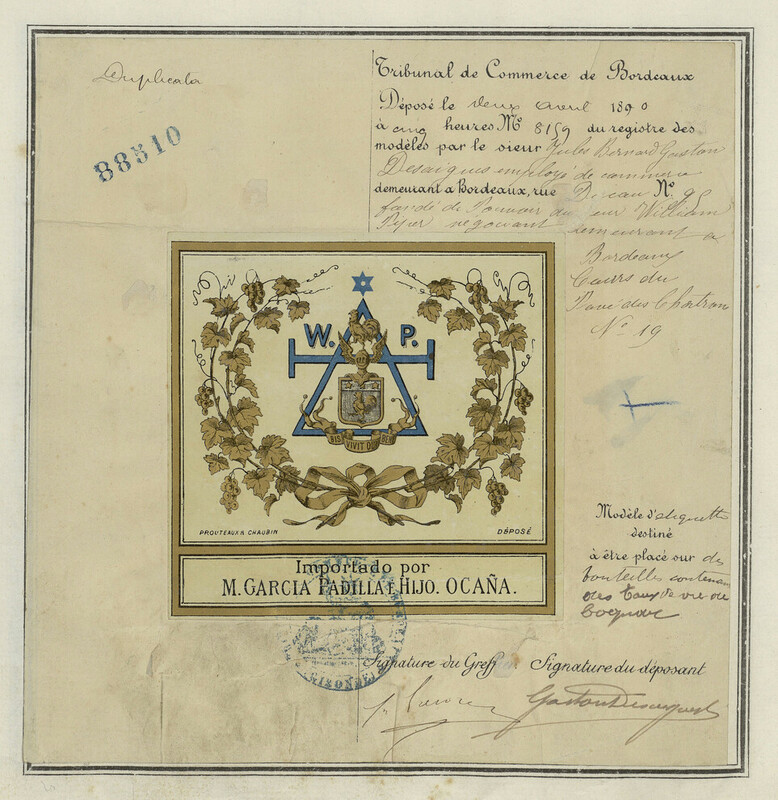 Duplicata
88510
Tribunal de Commerce de Bordeaux
Déposé le deux avril 1890
à cinq heures Nº 8159 du registre des
modèles par le sieur Jules Bernard Gaston
employé de commerce
demeurant a Bordeaux, rue Nº 95
fondé de Pouvoir du sieur William
négociant demeurant a
Bordeaux
Cours du
Pavé des Chartrons
Nº 19
W. P.
BIS VIVIT QUI BENE
PROUTEAUX & CHAUBIN
DÉPOSÉ
Importado por
M. GARCIA PADILLA É HIJO. OCAÑA.
GIRONDE
Modèle d'etiquette
destiné
à être placé sur des
bouteilles contenant
des Eaux de vie de
Cognac
Signature du Greffier Signature du déposant